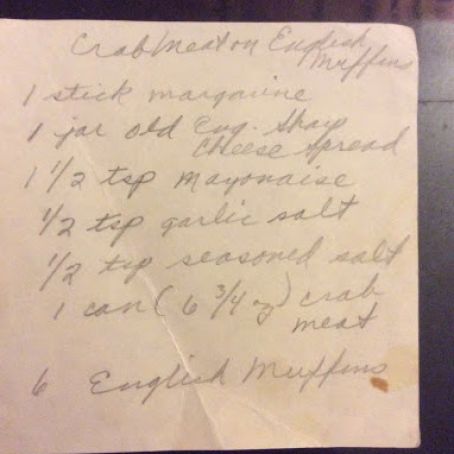 Crabmeat on English
Muffins
1 stick margarine
1 jar old Eng. Sharp
Cheese Spread
1 1/2 tsp mayonaise
1/2 tsp garlic salt
1/2 tsp seasoned salt
1 can (6 3/4 oz) crab
meat
6 English Muffins